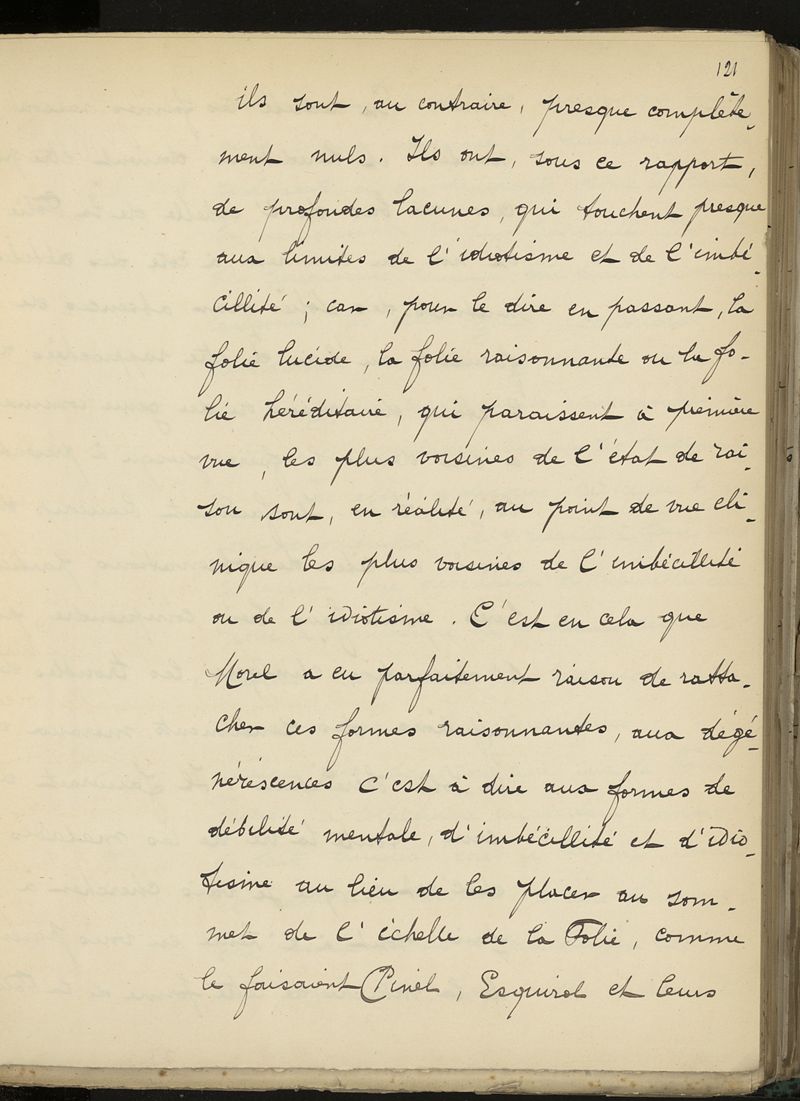 121
ils sont, au contraire, presque complète-
ment nuls. Ils ont, sous ce rapport,
de profondes lacunes, qui touchent presque
aux limites de l'idiotisme et de l'imbé-
cillité ; car, pour le dire en passant, la
folie lucide, la folie raisonnante ou la fo-
lie héréditaire, qui paraissent à première
vue, les plus voisines de l'état de rai-
son sont, en réalité, au point de vue cli-
nique les plus voisines de l'imbécillité
ou de l'idiotisme. C'est en cela que
Morel a eu parfaitement raison de ratta-
cher ces formes raisonnantes, aux dégé-
néréscences c'est à dire aux formes de
débilité mentale, d'imbécillité et d'idio-
tisme au lieu de les placer au som-
met de l'échelle de la Folie, comme
le faisaient Pinel, Esquirol et leurs